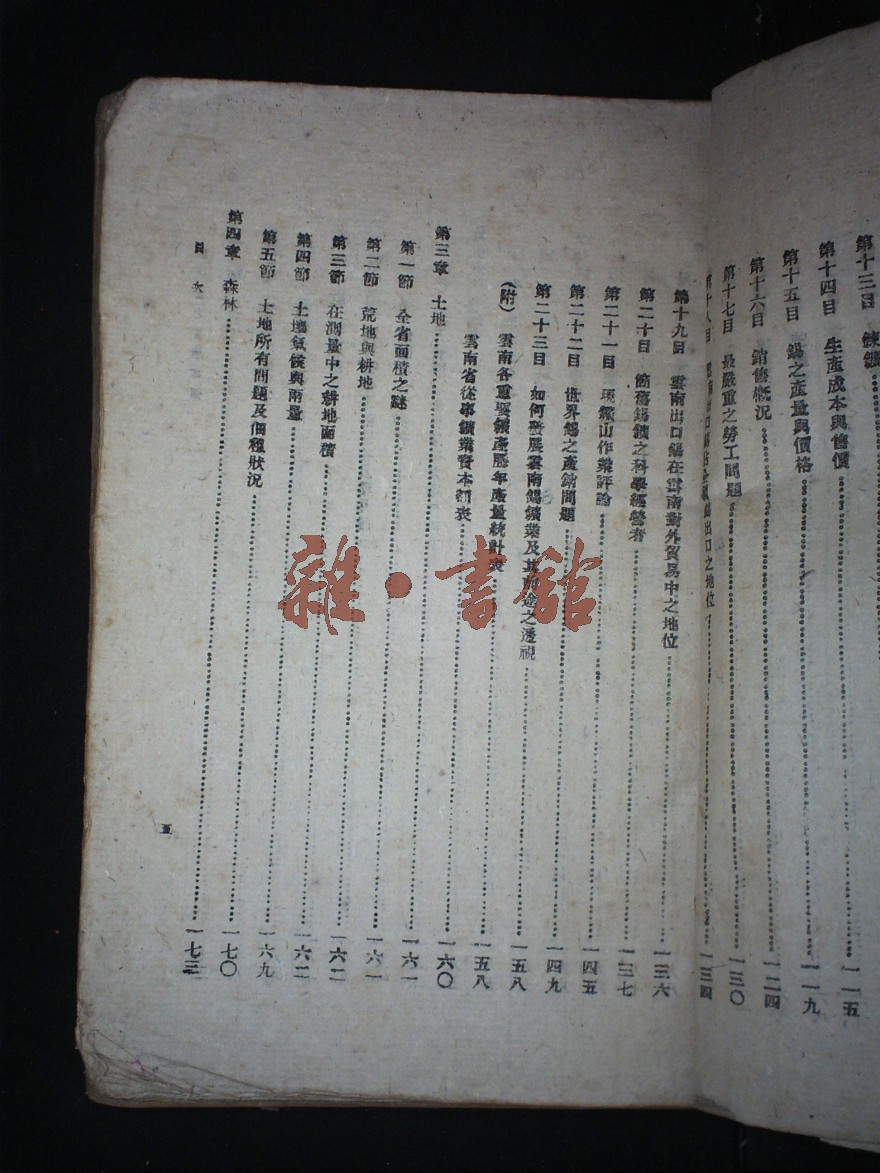 第十三目 煉鑛
第十四目 生產成本與售價……一一五
第十五目 錫之產量與價格……一一九
第十六目 銷售概況……一二四
第十七目 最嚴重之勞工問題……一三〇
第十八目 出口之地位……一三四
第十九目 雲南出口錫在雲南對外貿易中之地位……一三六
第二十目 箇舊錫鑛之科學經營者……一三七
第二十一目 鑛山作業評論……一四五
第二十二目 世界錫之產銷問題……一四九
第二十三目 如何發展雲南錫鑛業及其前途之透視……一五八
(附) 雲南各重要鑛產歷年產量統計表……一五八
雲南省從事鑛業資本額表……一六〇
第三章 土地……一六一
第一節 全省面積之謎……一六一
第二節 荒地與耕地……一六二
第三節 在測量中之耕地面積……一六二
第四節 土壤氣候與雨量……一六九
第五節 土地所有問題及佃種狀況……一七〇
第四章 森林……一七三
目次
五
雜·書館